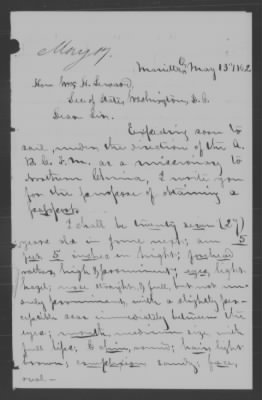 May 17.
Marietta O. May 13th 1862
Hon Wm. H. Seward,
Sec of State, Washington, D. C.
Dear Sir.
Expecting soon to
sail, under the direction of the A.
B. C. F. M. as a missionary to
Northern China, I write you
for the purpose of obtaining a
passport.
I shall be twenty seven (27)
years old in June next; am 5
feet 5 inches in hight; forehead
rather high & prominent; eyes light
hazel; nose straight & full, but not un-
duly prominent, with a slightly per-
ceptible scar immediately between the
eyes; mouth medium size with
full lips; chin, round; hair, light
brown; complexion sandy; face,
oval.—